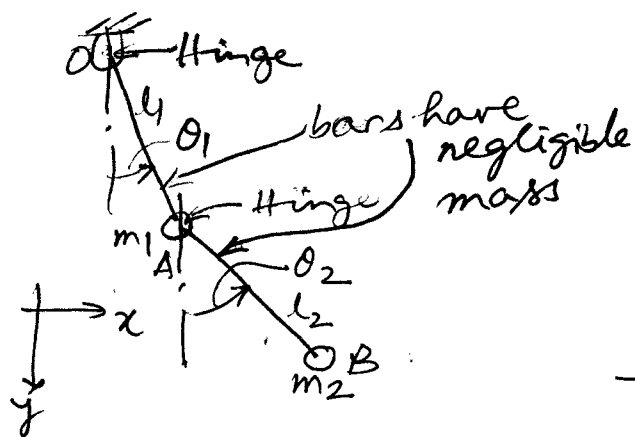 O Hinge
l1
θ1 bars have
negligible
mass
Hinge
m1
A
θ2
x l2
B
m2
y